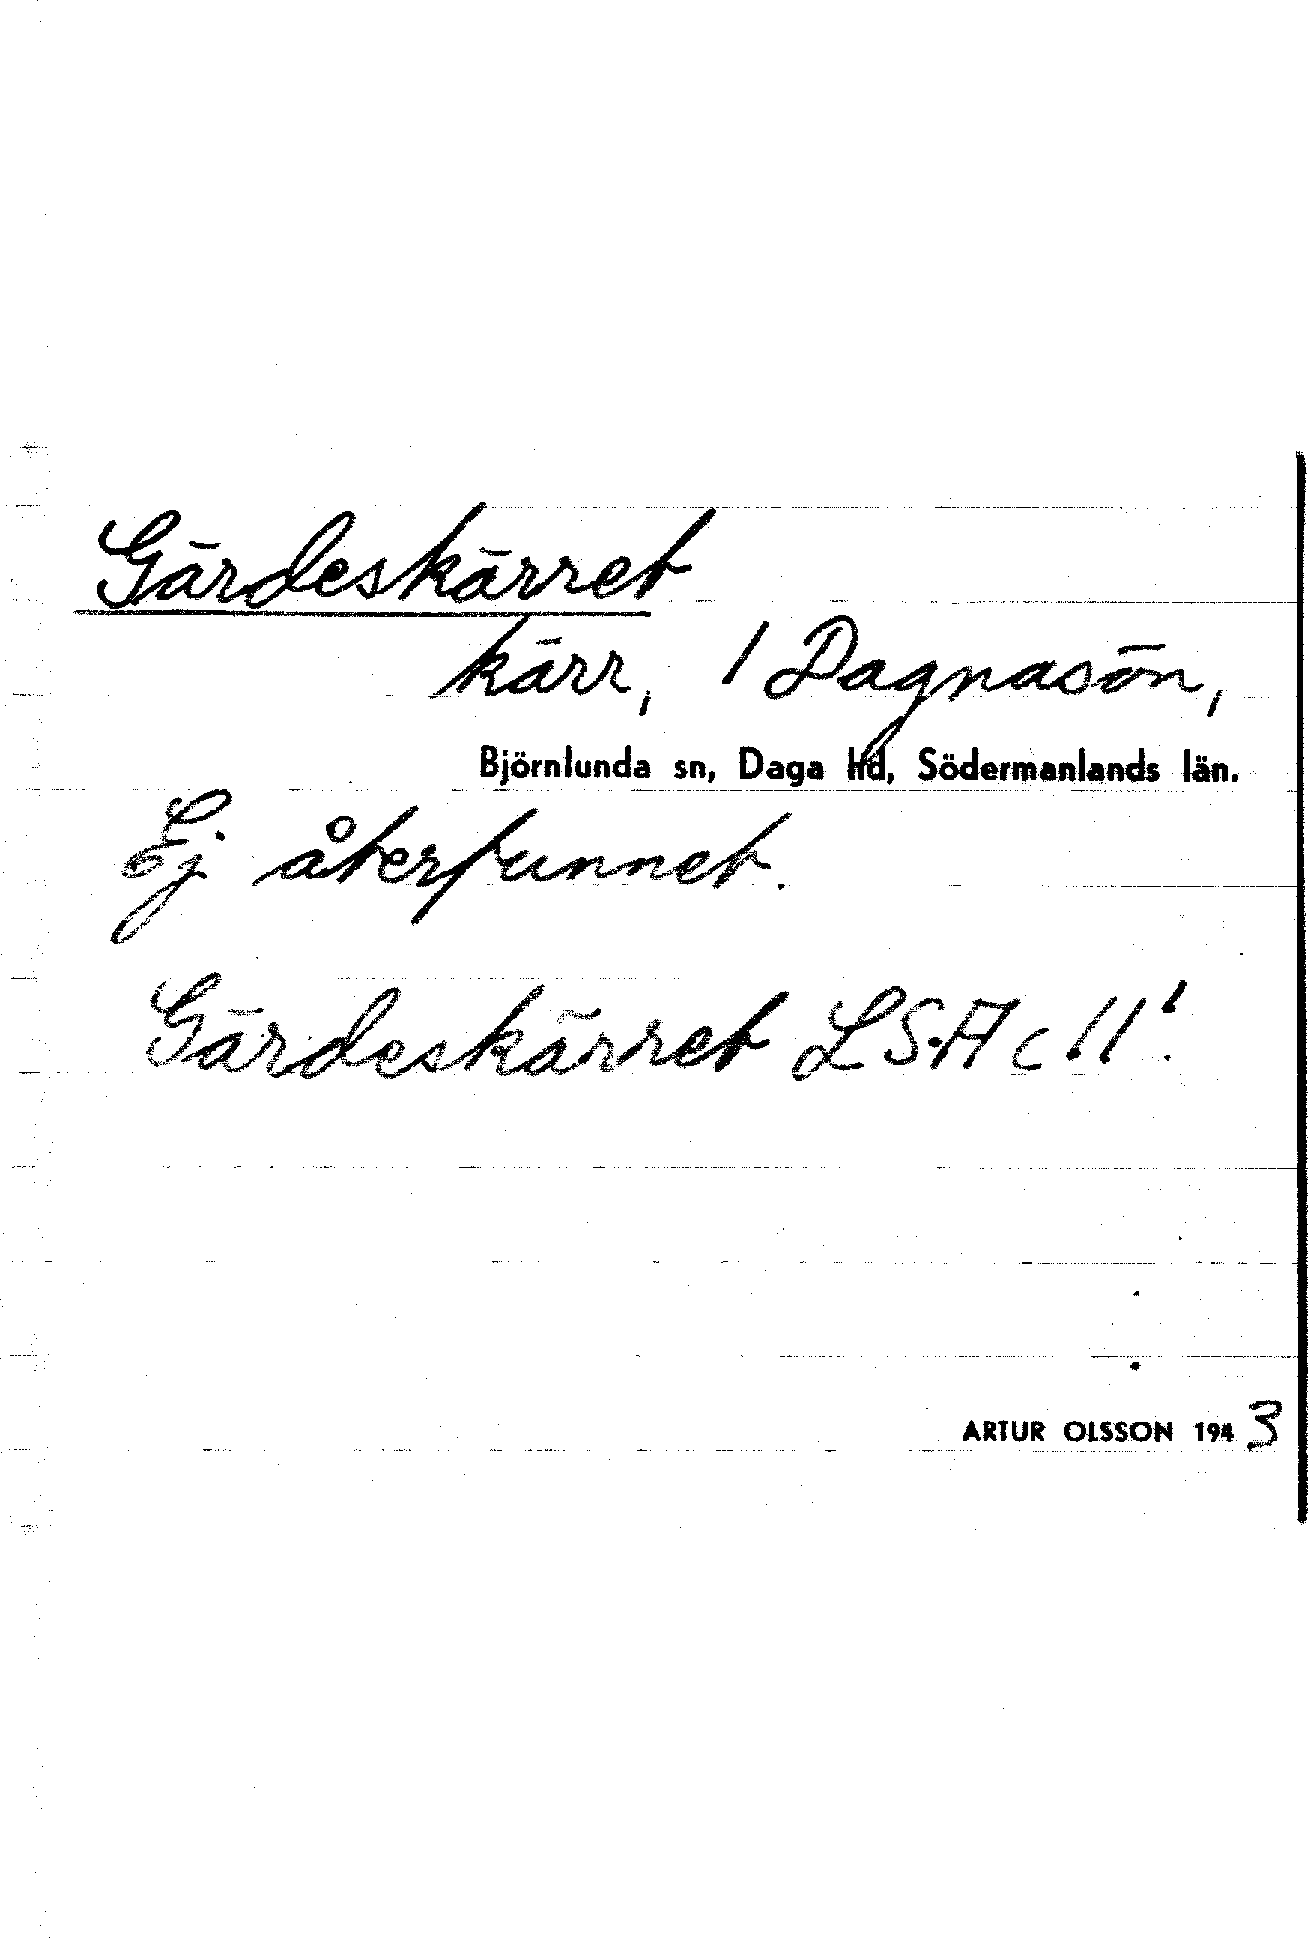 Gärdeskärret
kärr, / Dagnasön,
Björnlunda sn, Daga hd, Södermanlands län.
Ej återfunnet.
Gärdeskärret LSA c 11¹.
ARTUR OLSSON 1943